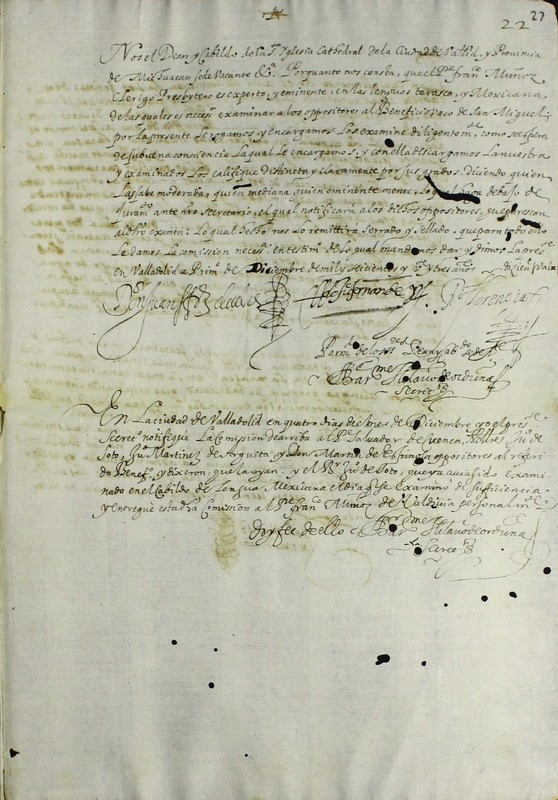 27
22
Nos el Dean y Cabildo, de la Sta. Iglesia Cathedral de la Ciudad de Vallid, y Provincia
de Michuacan sede Vacante &a. Por quanto nos consta, que el Pe. franco. Muñoz
Clerigo Presbytero es experto, y eminente, en las lenguas tarasca, y Mexicana,
de las quales es necesso. examinar a los oppositores al Beneficio de San Miguel,
por la presente le rogamos y encargamos los examine diligentemte. como se espera
de su buena consciencia la qual le encargamos, y con ella descargamos la nuestra
y examinados los califique distincta y claramente por sus grados. Diciendo quien
la sabe moderaba, quien mediana, quien eminente mente, lo qual haga debajo de
Juramto. ante nro secretario, el qual notificara a los dichos oppositores, que parescan
a dicho examen: lo qual hecho nos lo remittira serrado y sellado. que para todo ello
le damos la comission necesa. en testimo. de lo qual mandamos dar y dimos la prese.
en Valladolid a Primo. de Diciembre de mil y seiscientos y y tres años
Por mdo. de los Sres. Dean y Cabdo. sede Vte.
Bar. me Talavo de orduña
Secreto.
En la ciudad de Valladolid en quatro dias del mes de Diciembre yo el prese.
Secreto. notifique la Comission de arriba a l Pe. Salvador de Cuenca, Ju.o de
Soto, Ju.o Martinez de Argueta y Don Martin de Espinosa oppositores al referi
do Benefo. y dixeron, que la oyan. y el Br. Ju.o de Soto, que ya avia sido exami
nado en el Cabildo de Lengua Mexicana el dia q se examino de sufficiencia
y entregue esta dha Comission al Pe. franco. Muñoz de Valdivia personalmte.
Doy fee de ello
Bar. me Talavo de orduña
Secreto.